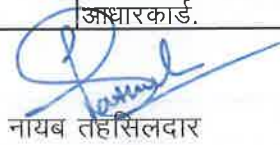 आधारकार्ड.
नायब तहसिलदार